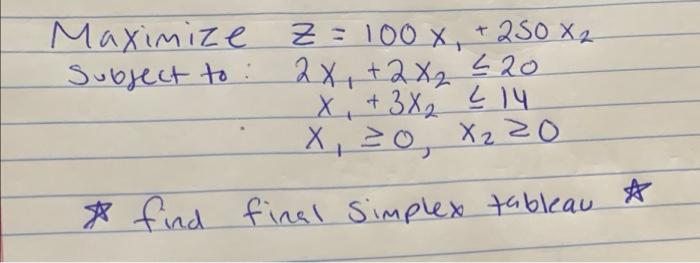 Maximize Z = 100 X₁ + 250 X₂
Subject to : 2X₁ + 2X₂ ≤ 20
X₁ + 3X₂ ≤ 14
X₁ ≥ 0, X₂ ≥ 0
☆ find final simplex tableau ☆